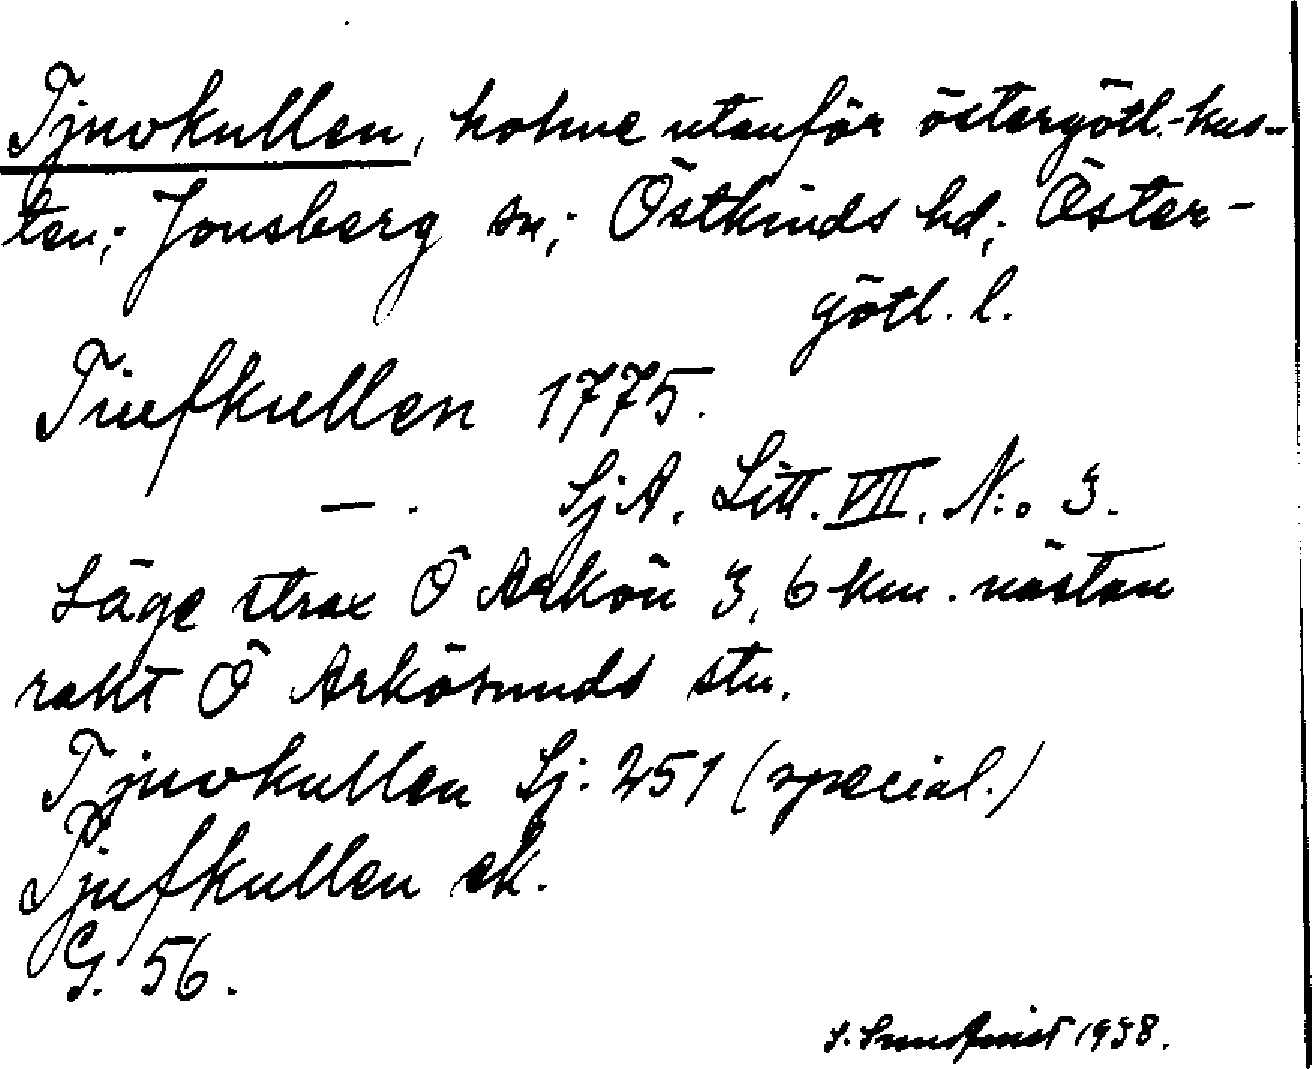 Tjuvkullen, holme utanför östergötl.-kus-
ten; Jonsberg sn; Östkinds hd; Öster-
götl. l.
Tiufkullen 1775.
— . SjA. Litt. VII. N:o 3.
Läge strax Ö Arkön 3,6 km. nästan
rakt Ö Arkösunds stn.
Tjuvkullen Sj. 251 (special.)
Tjufkullen ek.
G. 56.
S. Sundqvist 1938.